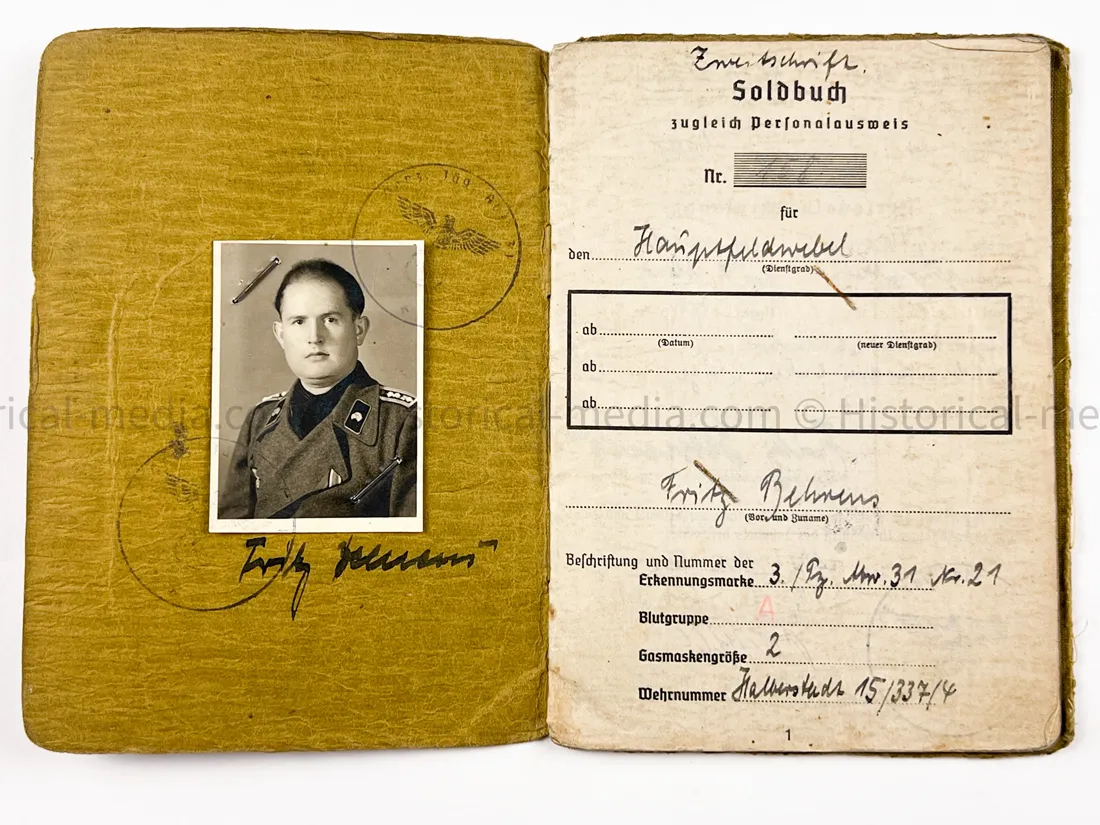 Fritz Behrens
Zweitschrift.
Soldbuch
zugleich Personalausweis
Nr.
für
den Hauptfeldwebel
(Dienstgrad)
ab
(Datum) (neuer Dienstgrad)
ab
ab
historical-media.com © Historical-me
Fritz Behrens
(Vor- und Zuname)
Beschriftung und Nummer der
Erkennungsmarke 3./Pz. Abw. 31 Nr. 21
Blutgruppe A
Gasmaskengröße 2
Wehrnummer Halberstadt 15/337/4
1